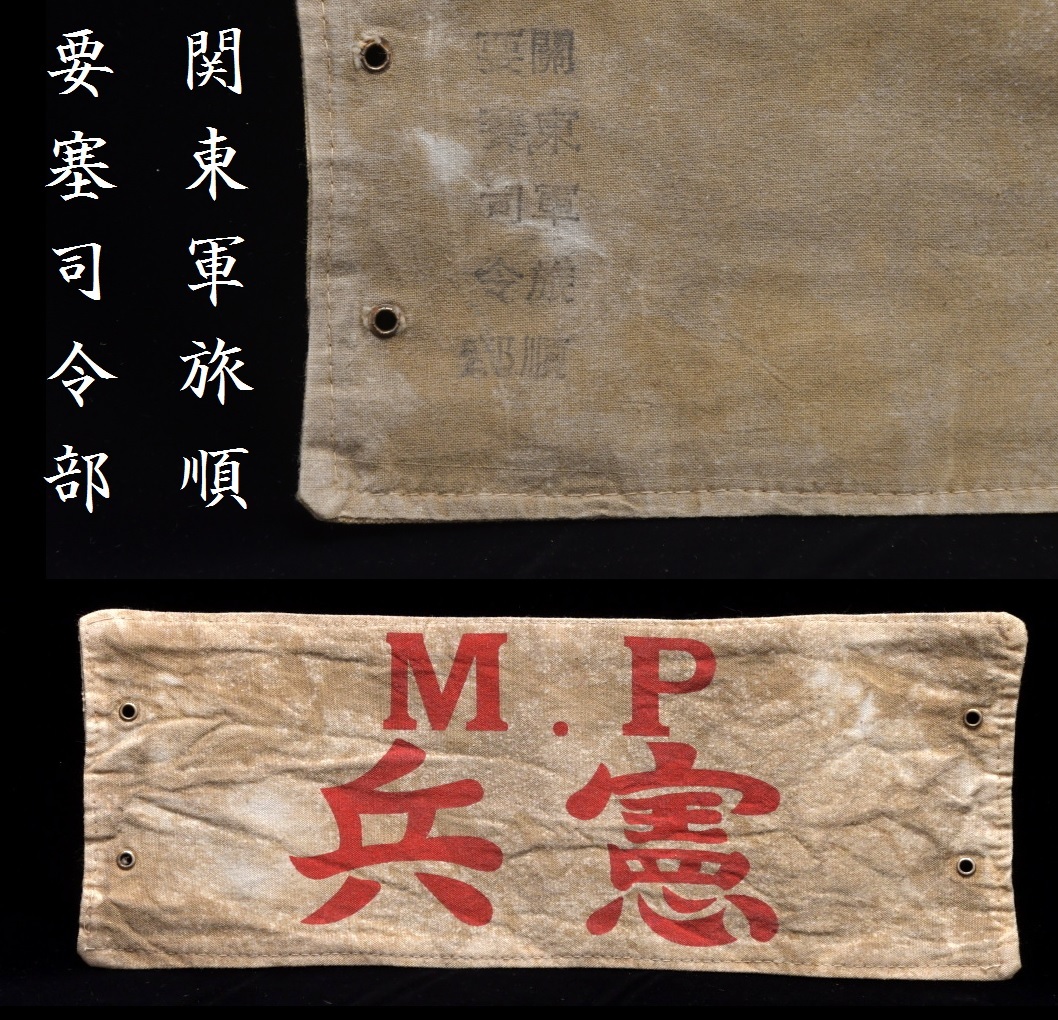 関東軍旅順
要塞司令部
關東軍旅順
要塞司令部
M.P
兵憲